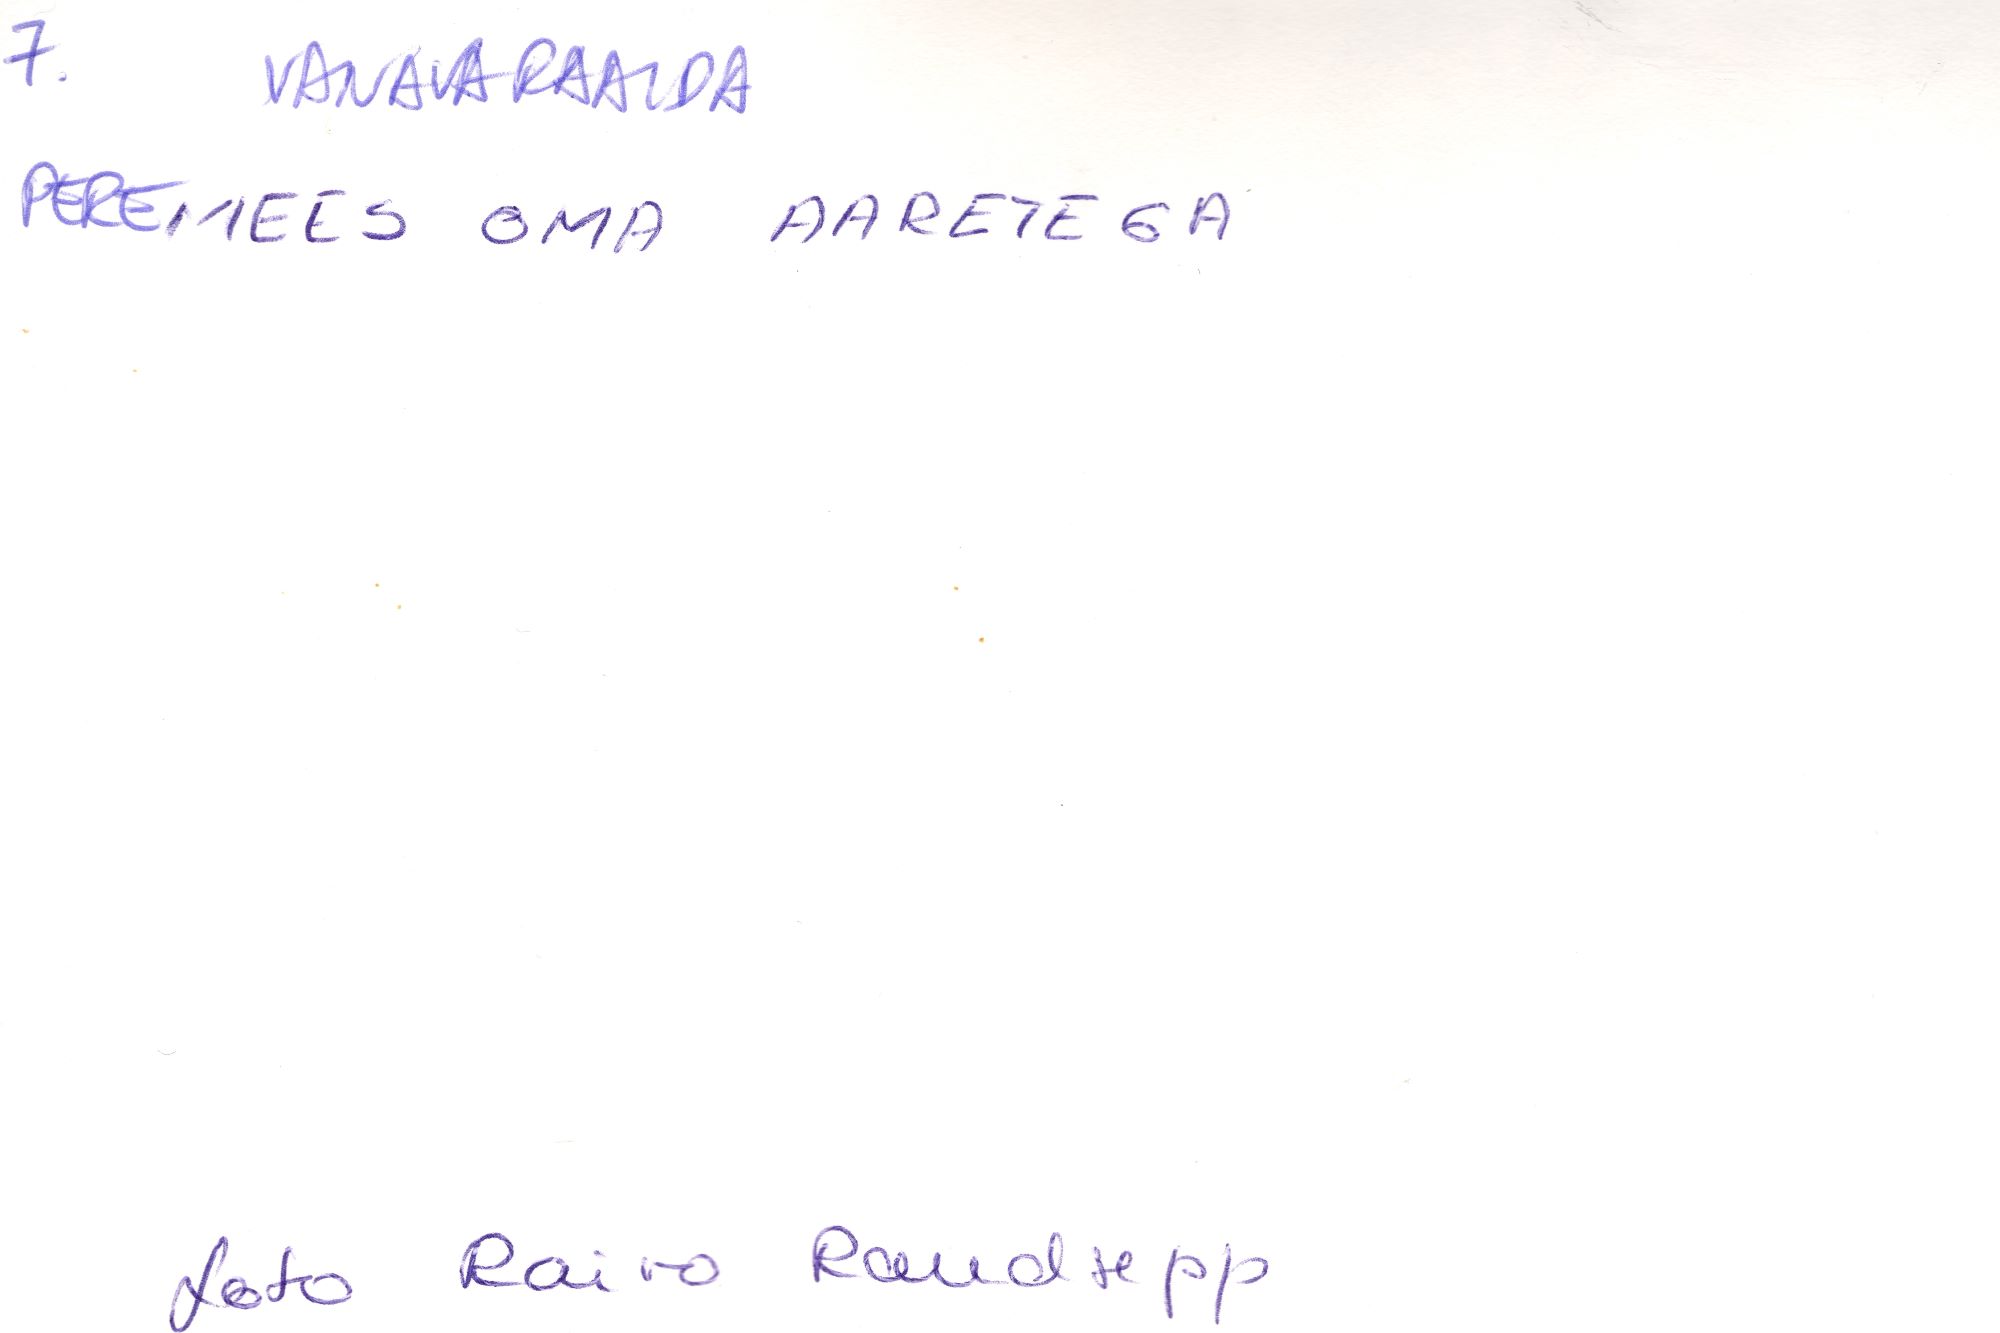 7. VANAVARAAIDA
PEREMEES OMA AARETEGA
foto Raivo Raudsepp